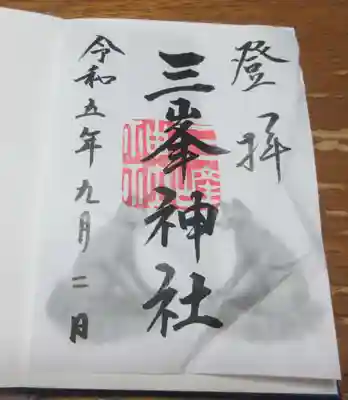 登拝
三峯神社
令和五年九月二日